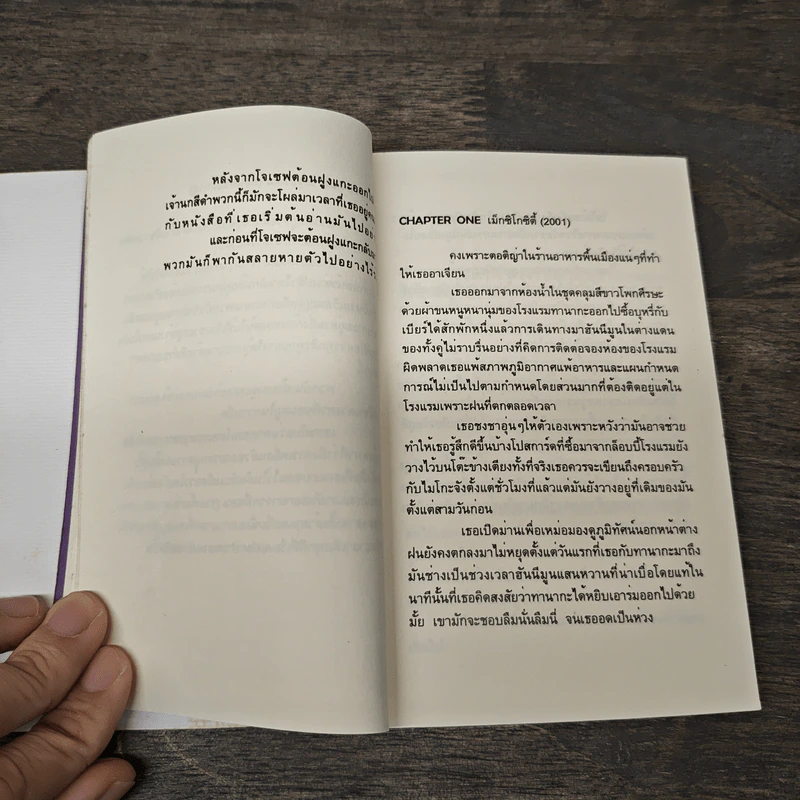 หลังจากโจเซฟต้อนฝูงแกะออกไป
เจ้านกสีดำพวกนี้ก็มักจะโผล่มาเวลาที่เธออยู่
กับหนังสือที่เธอเริ่มต้นอ่านมันไป
และก่อนที่โจเซฟจะต้อนฝูงแกะกลับ
พวกมันก็พากันสลายหายตัวไปอย่างไร้
CHAPTER ONE เม็กซิโกซิตี้ (2001)
คงเพราะตอติญ่าในร้านอาหารพื้นเมืองแน่ๆที่ทำ
ให้เธออาเจียน
เธอออกมาจากห้องน้ำในชุดคลุมสีขาวโพกศีรษะ
ด้วยผ้าขนหนูหนานุ่มของโรงแรมทานากะออกไปซื้อบุหรี่กับ
เบียร์ได้สักพักหนึ่งแล้วการเดินทางมาฮันนีมูนในต่างแดน
ของทั้งคู่ไม่ราบรื่นอย่างที่คิดการติดต่อจองห้องของโรงแรม
ผิดพลาดเธอแพ้สภาพภูมิอากาศแพ้อาหารและแผนกำหนด
การณ์ไม่เป็นไปตามกำหนดโดยส่วนมากที่ต้องติดอยู่แต่ใน
โรงแรมเพราะฝนที่ตกตลอดเวลา
เธอชงชาอุ่นๆให้ตัวเองเพราะหวังว่ามันอาจช่วย
ทำให้เธอรู้สึกดีขึ้นบ้างโปสการ์ดที่ซื้อมาจากล็อบบี้โรงแรมยัง
วางไว้บนโต๊ะข้างเตียงทั้งที่จริงเธอควรจะเขียนถึงครอบครัว
กับไมโกะจังตั้งแต่ชั่วโมงที่แล้วแต่มันยังวางอยู่ที่เดิมของมัน
ตั้งแต่สามวันก่อน
เธอเปิดม่านเพื่อเหม่อมองดูภูมิทัศน์นอกหน้าต่าง
ฝนยังคงตกลงมาไม่หยุดตั้งแต่วันแรกที่เธอกับทานากะมาถึง
มันช่างเป็นช่วงเวลาฮันนีมูนแสนหวานที่น่าเบื่อโดยแท้ใน
นาทีนั้นที่เธอคิดสงสัยว่าทานากะได้หยิบเอาร่มออกไปด้วย
มั้ย เขามักจะชอบลืมนั่นลืมนี่ จนเธออดเป็นห่วง